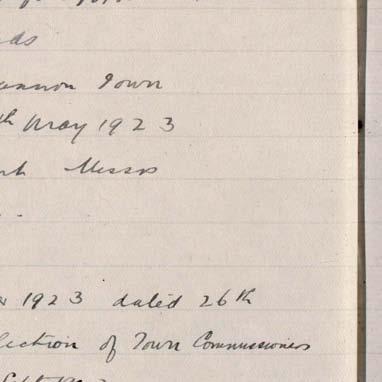 ds
annon Town
th May 1923
Messrs
1923 dated 26th
lection of Town Commissioners
Sept